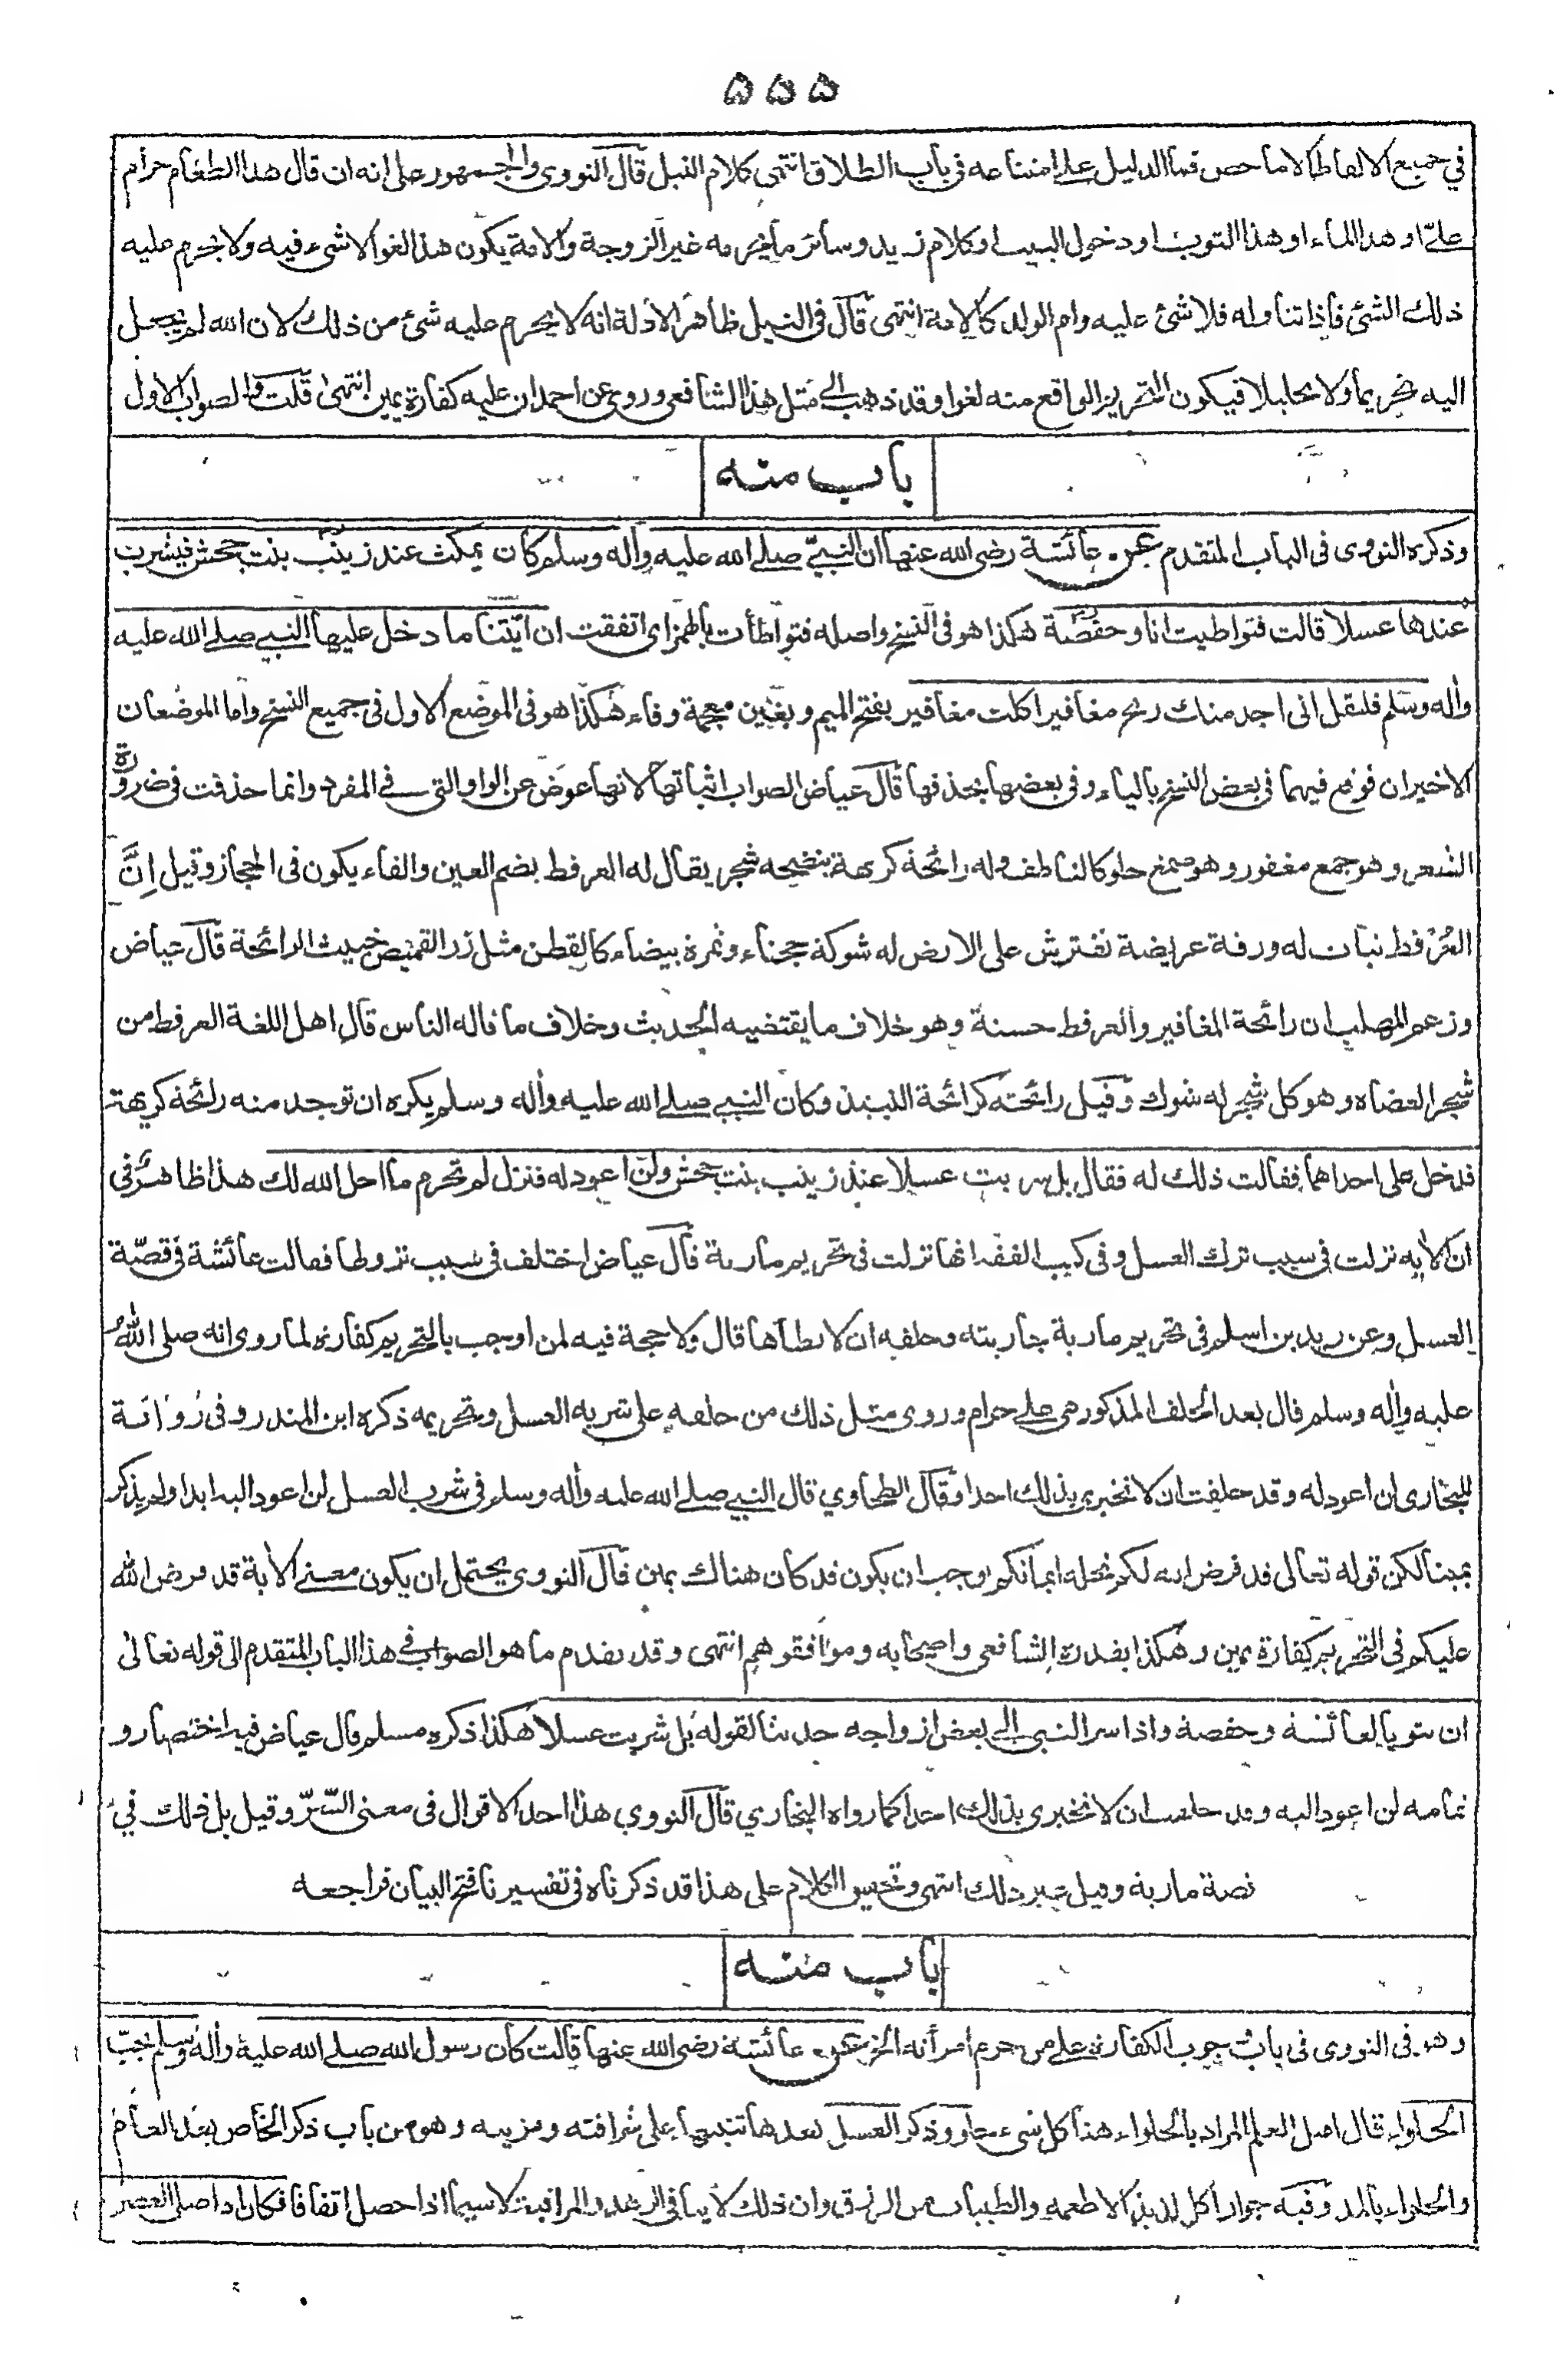 ۵۵۵
في جميع الالفاظ الا ما خص فما الدليل على امتناعه في باب الطلاق انتهى كلام النيل قال النووي والجمهور على انه ان قال هذا الطعام حرام
علي او هذا الماء او هذا الثوب او دخول البيت او كلام زيد وسائر ما يحرمه غير الزوجة والامة يكون هذا لغوا لا شيء فيه ولا يحرم عليه
ذلك الشئ فاذا تناوله فلا شئ عليه وام الولد كالامة انتهى قال في النيل ظاهر الادلة انه لا يحرم عليه شئ من ذلك لان الله لم يجعل
اليه تحريما ولا تحليلا فيكون التحريم الواقع منه لغوا وقد ذهب الى مثل هذا الشافعي وروى عن احمد ان عليه كفارة يمين انتهى قلت والصواب الاول
باب منه
وذكره النووى فى الباب المتقدم عن عائشة رضى الله عنها ان النبيّ صلے الله عليه واٰله وسلم كان يمكث عند زينب بنت جحش فيشرب
عندها عسلا قالت فتواطيت انا وحفصة هكذا هو فى النسخ واصله فتواطأت بالهمز اى اتفقت ان ايّتنا ما دخل عليها النبي صلے الله عليه
واٰله وسلم فلتقل انى اجد منك ريح مغافير اكلت مغافير بفتح الميم وبغين معجمة وفاء هكذا هو فى الموضع الاول فى جميع النسخ واما الموضعان
الاخيران فوقع فيهما فى بعض النسخ بالياء وفى بعضها بحذفها قال عياض الصواب اثباتها لانها عوض عن الواو التى فے المفرد وانما حذفت فى ضرورة
الشعر وهو جمع مغفور وهو صمغ حلو كالناطف وله رائحة كريهة ينضحه شجر يقال له العرفط بضم العين والفاء يكون فى الحجاز وقيل اِنَّ
العُرْفط نبات له ورقة عريضة تفترش على الارض له شوكة حجناء وثمرة بيضاء كالقطن مثل زر القميص خبيث الرائحة قال عياض
وزعم المهلب ان رائحة المغافير والعرفط حسنة وهو خلاف ما يقتضيه الحديث وخلاف ما قاله الناس قال اهل اللغة العرفط من
شجر العضاه وهو كل شجر له شوك وقيل رائحته كرائحة النبيذ وكان النبي صلے الله عليه واٰله وسلم يكره ان توجد منه رائحة كريهة
فدخل على احداهما فقالت ذلك له فقال بل شربت عسلا عند زينب بنت جحش ولن اعود له فنزل لم تحرم ما احل الله لك هذا ظاهر فى
ان الاٰيه نزلت فى سبب ترك العسل وفى كتب الفقه انها نزلت فى تحريم مارية قال عياض اختلف فى سبب نزولها فقالت عائشة فى قصّة
العسل وعن زيد بن اسلم فى تحريم مارية جاريته وحلفه ان لا يطأها قال ولا حجة فيه لمن اوجب بالتحريم كفارة لما روى انه صلى الله
عليه واٰله وسلم قال بعد الحلف المذكور هى علے حرام وروى مثل ذلك من حلفه على شربه العسل وتحريمه ذكره ابن المنذر وفى رواية
للبخارى لن اعود له وقد حلفت ان لا تخبرى بذلك احدا وقال الطحاوي قال النبي صلے الله عليه واٰله وسلم فى شرب العسل لن اعود اليه ابدا ولم يذكر
يمينا لكن قوله تعالى قد فرض الله لكم تحلة ايمانكم يوجب ان يكون قد كان هناك يمين قال النووى يحتمل ان يكون معنى الاٰية قد فرض الله
عليكم فى التحريم كفارة يمين وهكذا يقدره الشافعى واصحابه وموافقوهم انتهى وقد تقدم ما هو الصواب فے هذا الباب المتقدم الى قوله تعالىٰ
ان تتوبا لعائشة وحفصة واذ اسر النبى الى بعض ازواجه حديثا لقوله بل شربت عسلا هكذا ذكره مسلم قال عياض فيه اختصار و
تمامه لن اعود اليه وقد حلفت ان لا تخبرى بذلك احدا كما رواه البخاري قال النووي هذا احد الاقوال فى معنى السّرّ وقيل بل ذلك في
قصة مارية وقيل غير ذلك انتهى وتحقيق الكلام على هذا قد ذكرناه فى تفسيرنا فتح البيان فراجعه
باب منه
وهو فى النووى فى باب وجوب الكفارة على من حرم امرأته الخ عن عائشة رضى الله عنها قالت كان رسول الله صلے الله عليه واٰله وسلم يحبّ
الحلواء قال اهل العلم المراد بالحلواء هذا كل شىء حلو وذكر العسل بعدها تنبيها على شرافته ومزيته وهو من باب ذكر الخاص بعد العام
والحلواء بالمد وفيه جواز اكل لذيذ الاطعمه والطيبات من الرزق وان ذلك لا ينافى الزهد والمراقبة لا سيما اذا حصل اتفاقا فكان اذا صلى العصر